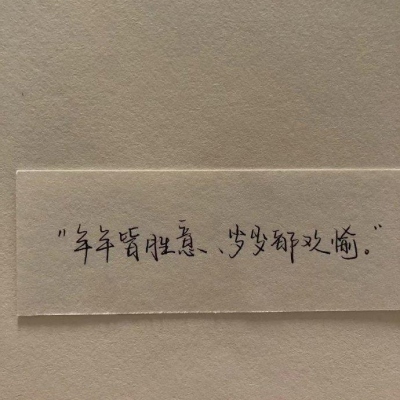 "年年皆胜意、岁岁都欢愉。"